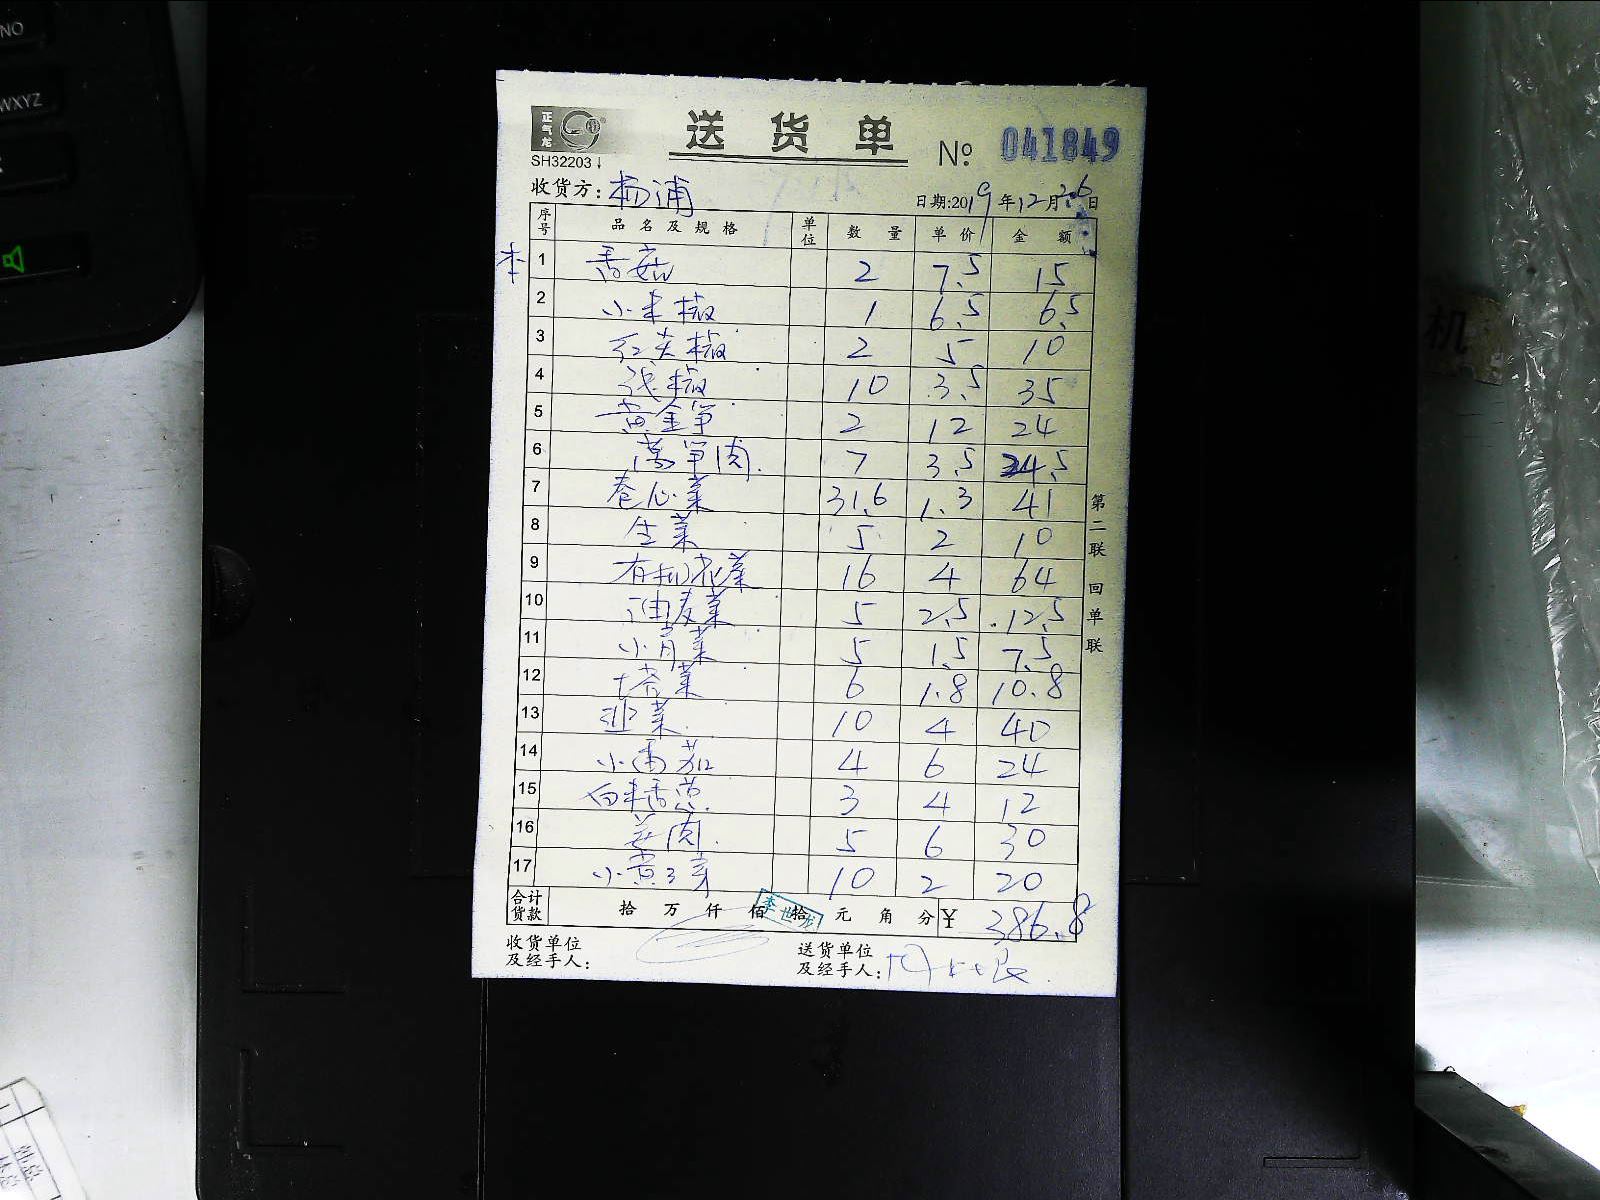 NO
WXYZ
正气龙
SH32203
送货单 № 041849
收货方: 杨浦 日期:2019年12月26日
序号 品名及规格 单位 数量 单价 金额
本 1 香菇 2 7.5 15
2 小米椒 1 6.5 6.5
3 红尖椒 2 5 10
4 浅椒 10 3.5 35
5 黄金笋 2 12 24
6 莴笋肉 7 3.5 24.5
7 卷心菜 31.6 1.3 41
8 生菜 5 2 10
9 有机花菜 16 4 64
10 油麦菜 5 2.5 12.5
11 小青菜 5 1.5 7.5
12 塔菜 6 1.8 10.8
13 韭菜 10 4 40
14 小番茄 4 6 24
15 白米香葱 3 4 12
16 茭肉 5 6 30
17 小黄芽 10 2 20
合计货款 拾 万 仟 佰 拾 元 角 分 ¥ 386.8
收货单位及经手人:
送货单位及经手人:
第二联 回单联
机